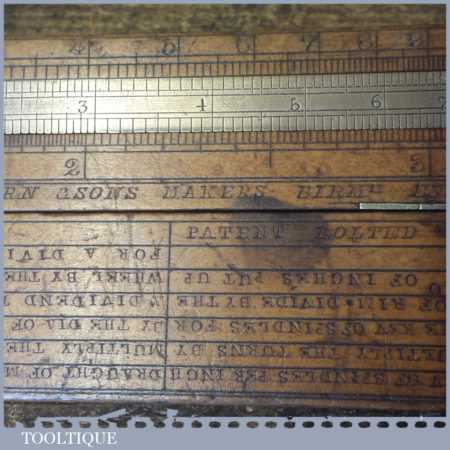 4 5 6 7 8 9
3 4 5 6 7
2 3
RN & SONS MAKERS BIRMM
PATENT BOLTED
FOR A DIVI
OF INCHES PUT UP
WHEEL BY THE
OF RIM. DIVIDE BY THE
& DIVIDEND
E KEY OF SPINDLES FOR
BY THE DIA OF
ULTIPLY THE TURNS BY
MULTIPLY THE
OF SPINDLES PER INCH
DRAUGHT OF M
TOOLTIQUE